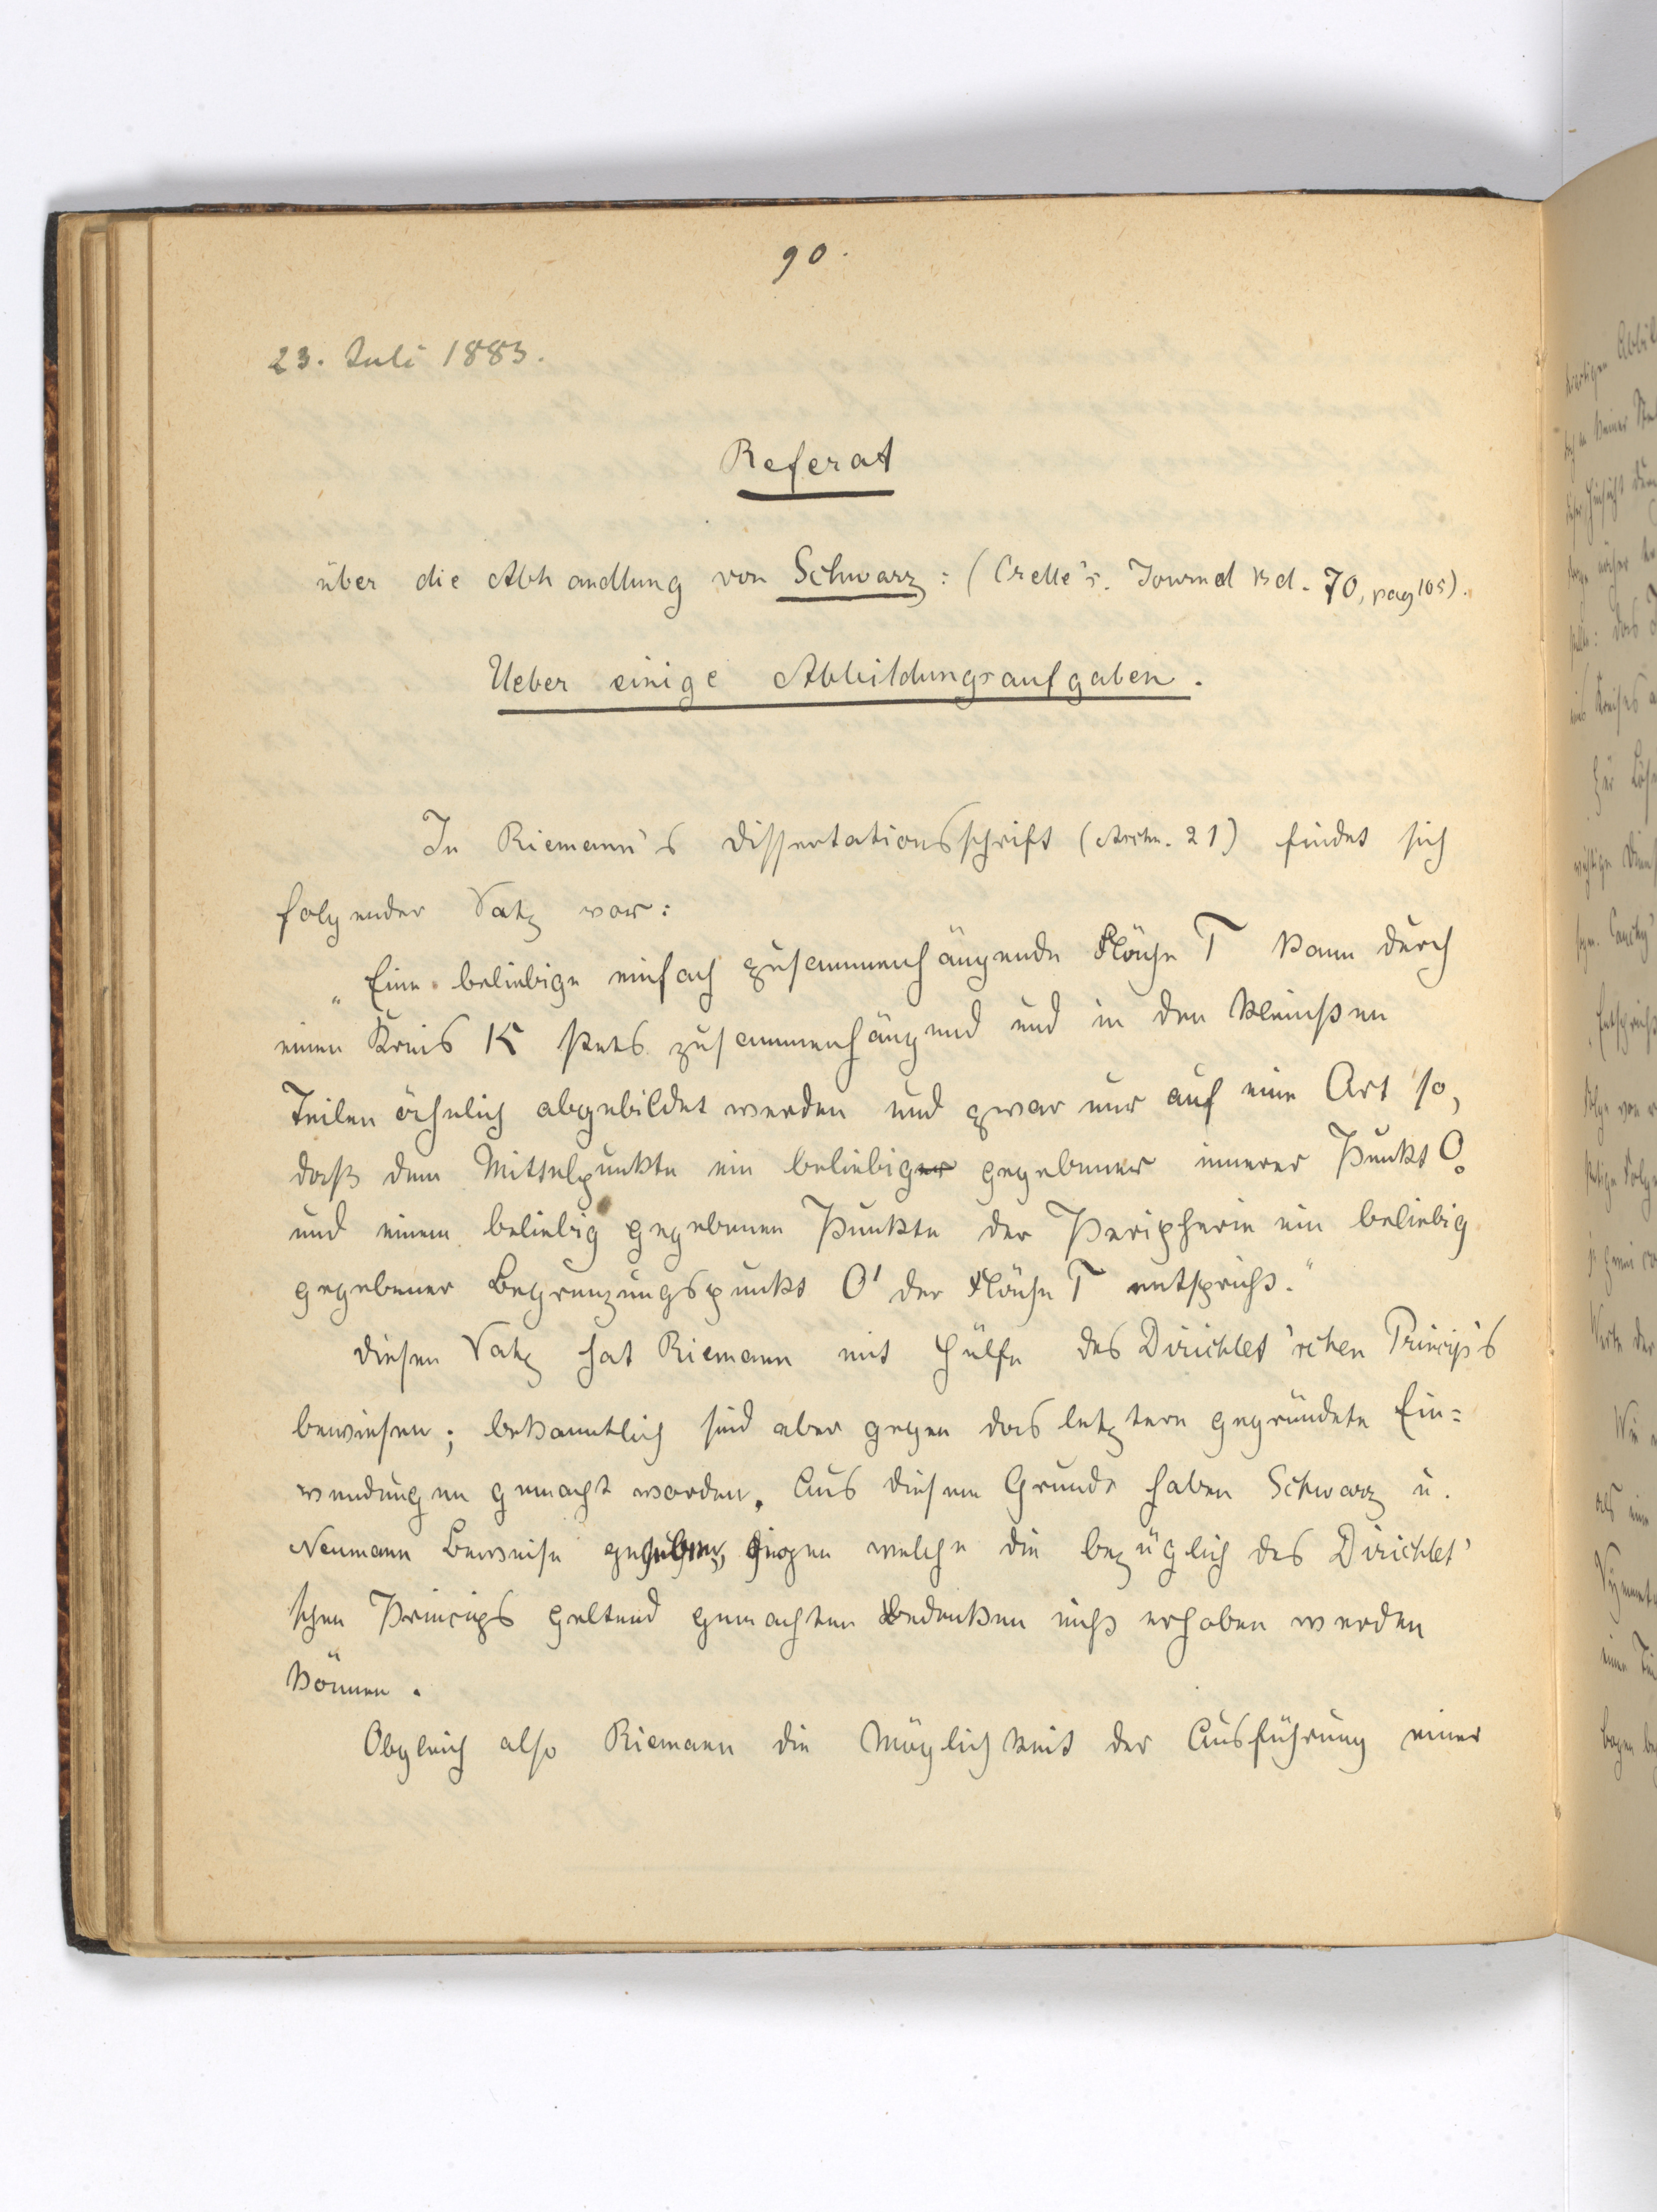 90.
23. Juli 1883.
Referat
über die Abhandlung von Schwarz: (Crelle's. Journal Bd. 70, pag 105).
Ueber einige Abbildungsaufgaben.
In Riemann's Dissertationsschrift (Artk. 21) findet sich
folgender Satz vor:
„Eine beliebige einfach zusammenhängende Fläche T kann durch
einen Kreis K stets zusammenhängend und in den kleinsten
Teilen ähnlich abgebildet werden und zwar nur auf eine Art so,
daß dem Mittelpunkte ein beliebig gegebener innerer Punkt O₀
und einem beliebig gegebenen Punkte der Peripherie ein beliebig
gegebener Begrenzungspunkt O' der Fläche T entspricht."
Diesen Satz hat Riemann mit Hülfe des Dirichlet'schen Princip's
bewiesen; bekanntlich sind aber gegen das letztere gegründete Ein=
wendungen gemacht worden. Aus diesem Grunde haben Schwarz u.
Neumann Beweise gegeben, gegen welche die bezüglich des Dirichlet'
schen Princips geltend gemachten Bedenken nicht erhoben werden
können.
Obgleich also Riemann die Möglichkeit der Ausführung einer